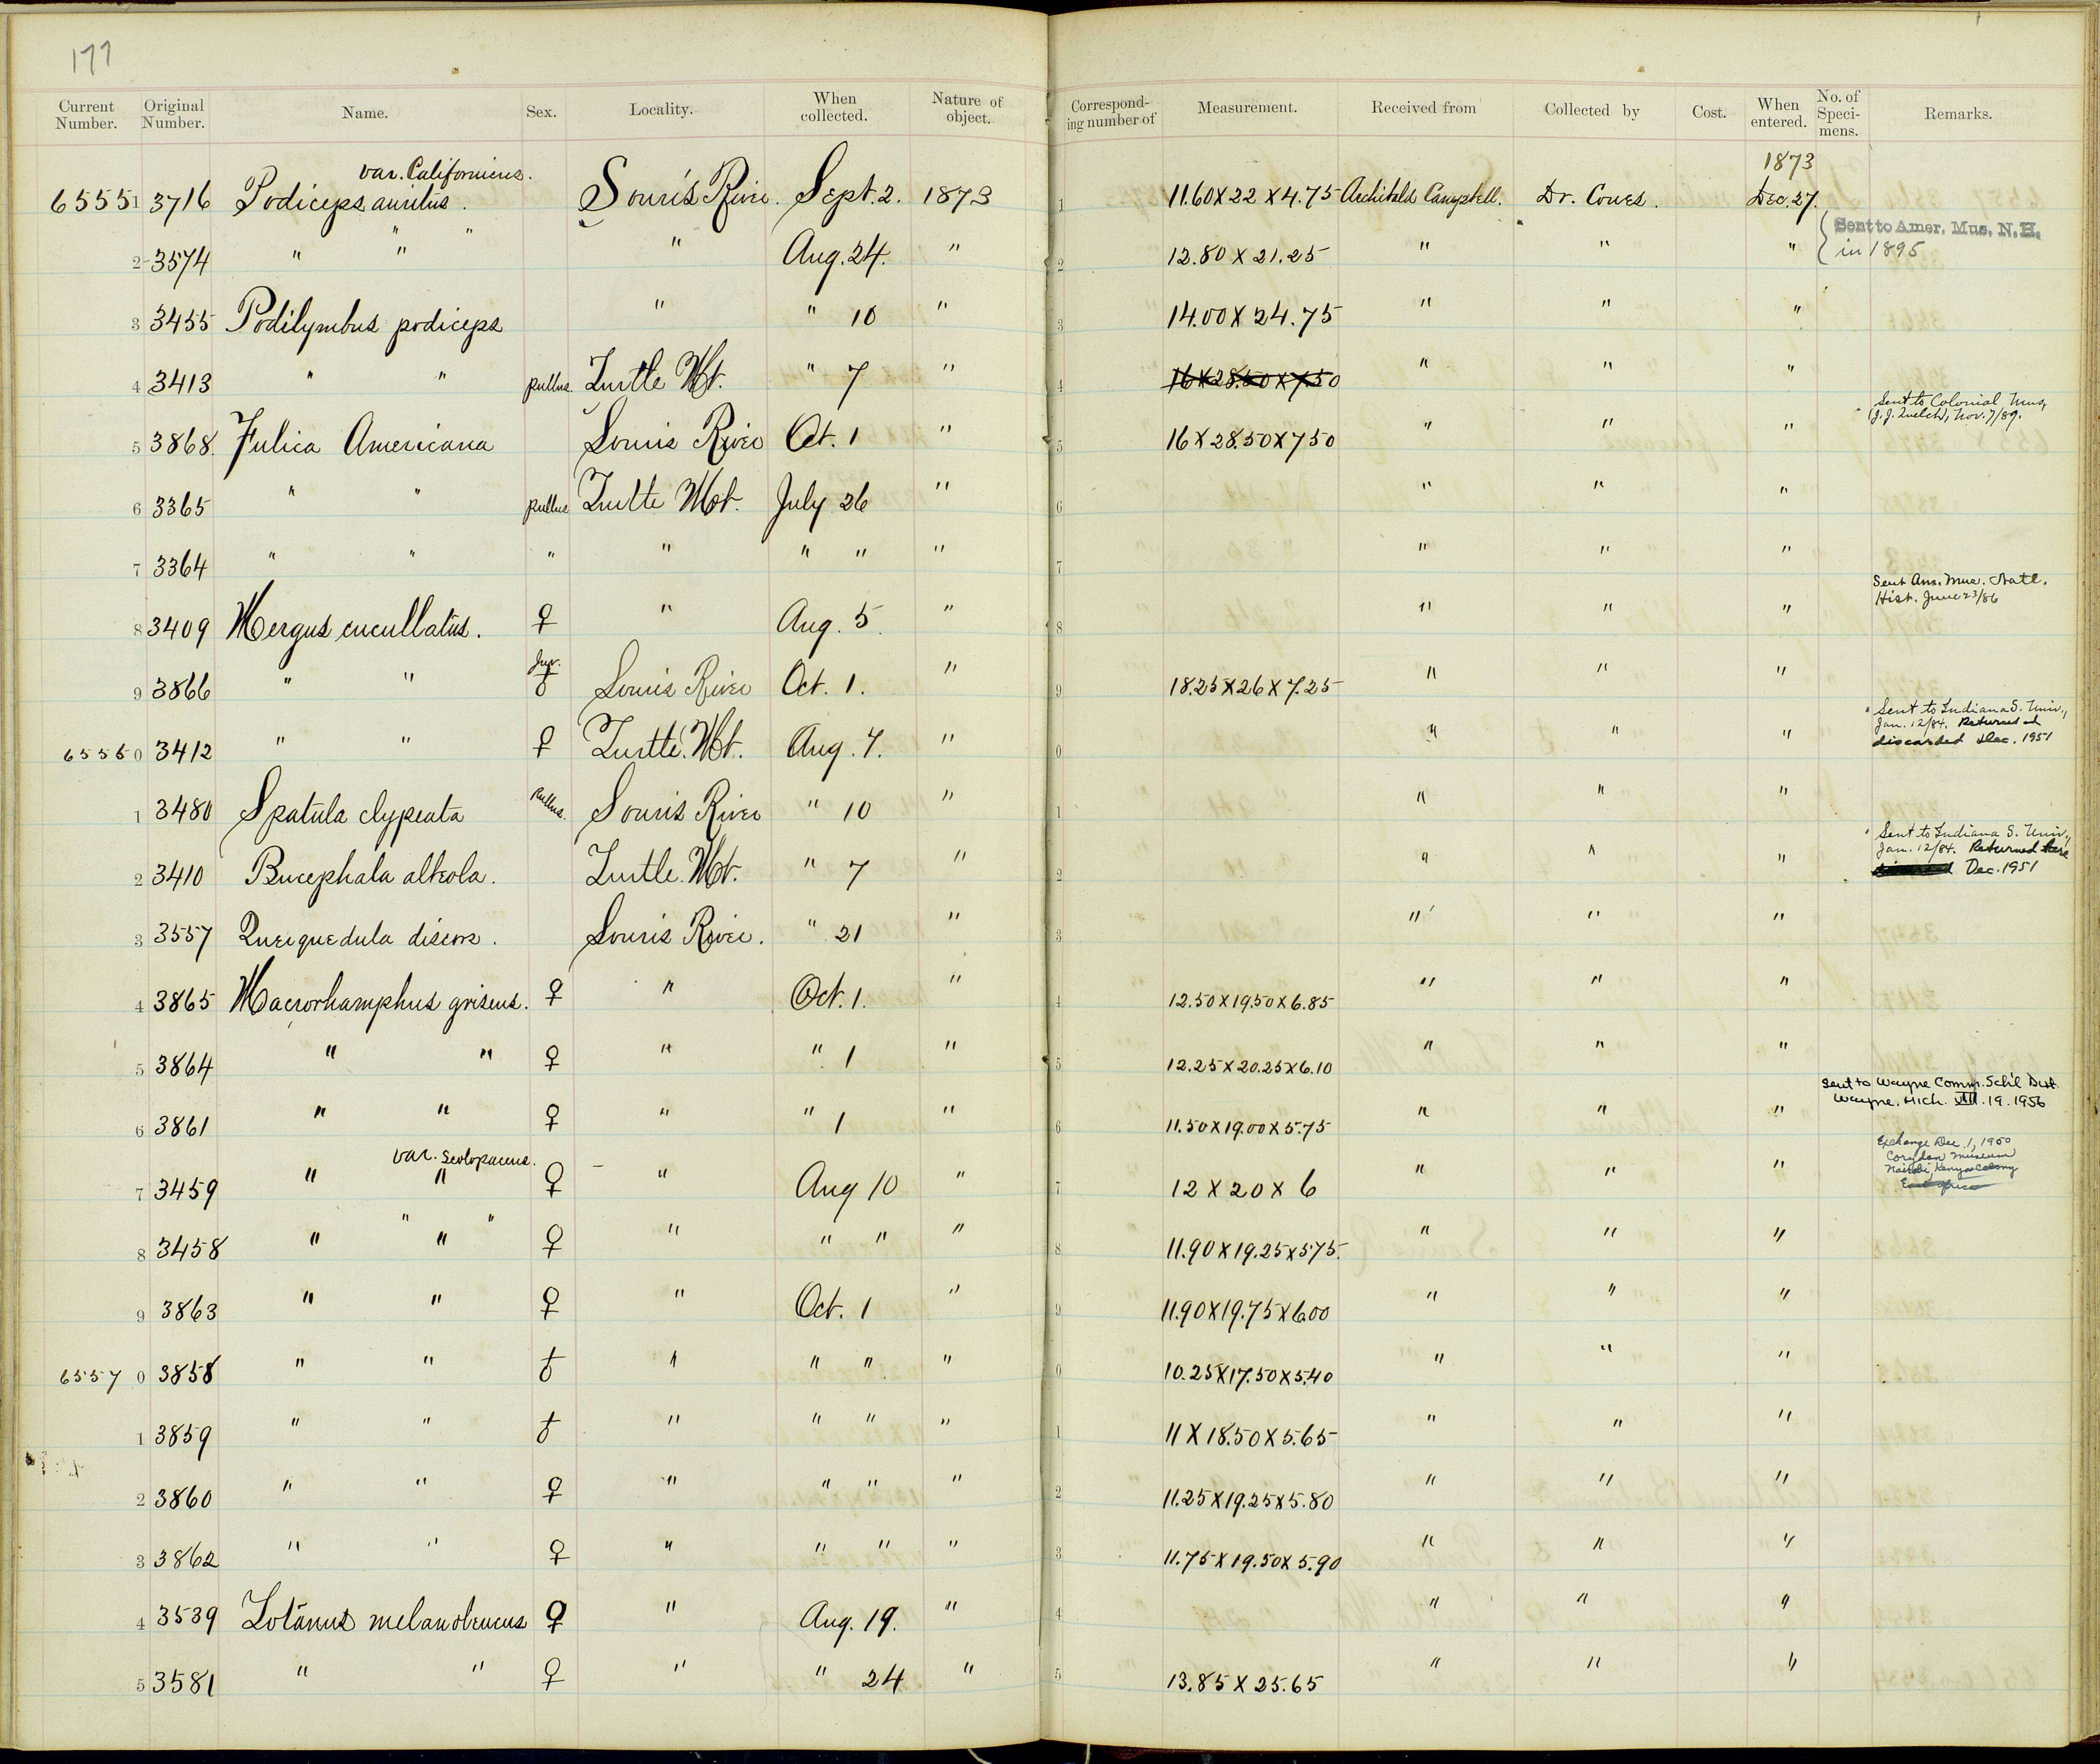 177
Current Number. Original Number. Name. Sex. Locality. When collected. Nature of object. Corresponding number of Measurement. Received from Collected by Cost. When entered. No. of Specimens. Remarks.
var. Californicus. 1873
65551 3716 Podiceps auritus. Souris River. Sept. 2. 1873 1 11.60 X 22 X 4.75 Archibald Campbell. Dr. Coues. Dec. 27.
" " "
2 3574 " " " Aug. 24. " 2 12.80 X 21.25 " " " { Sent to Amer. Mus. N.H. in 1895
3 3455 Podilymbus podiceps " " 10 " 3 14.00 X 24.75 " " "
4 3413 " " pullus. Turtle Mt. " 7 " 4 16 X 28.50 X 7.50 " " "
5 3868. Fulica Americana Souris River Oct. 1 " 5 16 X 28.50 X 7 50 " " " Sent to Colonial Mus, (J. J. Quelch), Nov. 7/89.
6 3365 " " pullus Turtle Mt. July 26 " 6 " " "
7 3364 " " " " " " " 7 " " "
8 3409 Mergus cucullatus. ♀ " Aug. 5. " 8 " " " Sent Am. Mus. Natl. Hist. June 23/86
9 3866 " " Juv. ♂ Souris River Oct. 1. " 9 18.25 X 26 X 7.25 " " "
65560 3412 " " ♀ Turtle. Mt. Aug. 7. " 0 " " " Sent to Indiana S. Univ., Jan. 12/84. Returned & discarded Dec. 1951
1 3480 Spatula clypeata Pullus. Souris River " 10 " 1 " " "
2 3410 Bucephala albeola. Turtle. Mt. " 7 " 2 " " " Sent to Indiana S. Univ., Jan. 12/84. Returned here Dec. 1951
3 3557 Querquedula discors. Souris River. " 21 " 3 " " "
4 3865 Macrorhamphus griseus. ♀ " Oct. 1. " 4 12.50 X 19.50 X 6.85 " " "
5 3864 " " ♀ " " 1 " 5 12.25 X 20.25 X 6.10 " " "
6 3861 " " ♀ " " 1 " 6 11.50 X 19.00 X 5.75 " " " Sent to Wayne Comm. Sch'l Dist. Wayne, Mich. VII. 19. 1956
var. scolopaceus.
7 3459 " " ♀ – " Aug 10 " 7 12 X 20 X 6 " " " Exchange Dec. 1, 1950 Coryndon Museum Nairobi, Kenya Colony East Africa
" "
8 3458 " " ♀ " " " " 8 11.90 X 19.25 X 5.75. " " "
9 3863 " " ♀ " Oct. 1 " 9 11.90 X 19.75 X 6.00 " " "
65570 3858 " " ♂ " " " " 0 10.25 X 17.50 X 5.40 " " "
1 3859 " " ♂ " " " " 1 11 X 18.50 X 5.65 " " "
2 3860 " " ♀ " " " " 2 11.25 X 19.25 X 5.80 " " "
3 3862 " " ♀ " " " " 3 11.75 X 19.50 X 5.90 " " "
4 3539 Totanus melanoleucus ♀ " Aug. 19. " 4 " " "
5 3581 " " ♀ " " 24 " 5 13.85 X 25.65 " " "